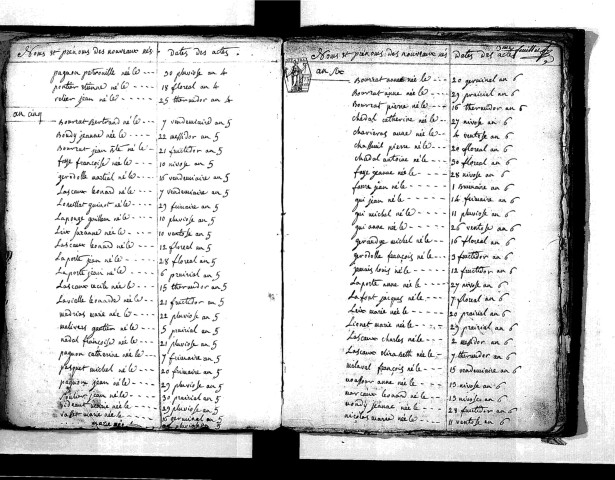 Noms et prénoms des nouveaux nés Dates des actes.
pagnon petronille née le 30 pluviose an 4
née le 18 floreal an 4
jean né le 25 thermidor an 4
an cinq
Bourrat Bertrand né le 7 vendemiaire an 5
Bondy jeanne née le 22 messidor an 5
Bourrat jean né le 21 fructidor an 5
faye françoise née le 10 nivose an 5
gerodolle martial né le 15 vendemiaire an 5
Lascaux leonard né le 7 vendemiaire an 5
né le 29 frimaire an 5
Laponge né le 10 pluviose an 5
Leix née le 10 ventose an 5
Lascaux leonard né le 12 floreal an 5
Laporte jean né le 28 floreal an 5
Laporte jean né le 6 prairial an 5
Lascaux cecile née le 15 thermidor an 5
Lavialle leonarde née le 21 fructidor an 5
marie née le 22 pluviose an 5
né le 5 prairial an 5
nadal françoise née le 21 pluviose an 5
pagnon catherine née le 7 frimaire an 5
michel né le 20 frimaire an 5
pagnon jean né le 29 pluviose an 5
jean né le 30 prairial an 5
née le 29 pluviose an 5
marie née le 15 germinal an 5
marie née
feuillet
Noms et prénoms des nouveaux nés Dates des actes
an six
Bourrat née le 20 germinal an 6
Bourrat anne née le 29 prairial an 6
Bourrat pierre né le 16 thermidor an 6
chadal catherine née le 27 nivose an 6
anne née le 4 ventose an 6
pierre né le 20 floreal an 6
chadal antoine né le 30 floreal an 6
faye jeanne née le 28 nivose an 6
favre jean né le 1 brumaire an 6
gui jean né le 14 frimaire an 6
gui michel né le 11 pluviose an 6
gui anne née le 26 ventose an 6
michel né le 16 floreal an 6
gerodolle françois né le 9 fructidor an 6
louis né le 12 fructidor an 6
Laporte anne née le 27 nivose an 6
Lafont jacques né le 7 floreal an 6
Leix marie née le 20 prairial an 6
Lionet marie née le 29 prairial an 6
Lascaux charles né le 2 messidor an 6
Lascaux elizabeth née le 7 thermidor an 6
françois né le 15 vendemiaire an 6
anne née le 19 nivose an 6
leonard né le 19 nivose an 6
jeanne née le 28 fructidor an 6
nicolas marie née le 11 ventose an 6